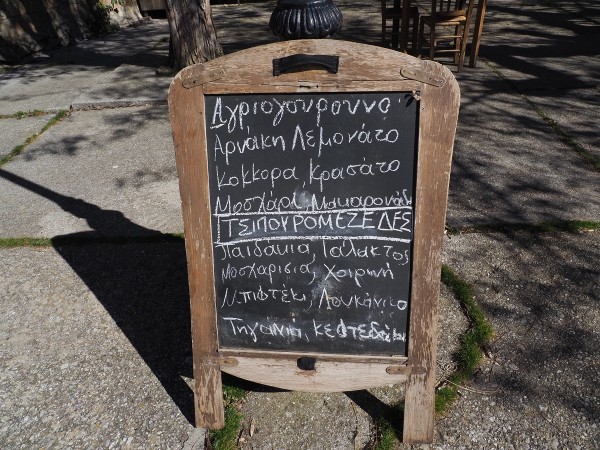 Αγριογουρουνο
Αρνακη Λεμονάτο
Κοκκορα Κρασάτο
Μοσχαρι, Μακαρονάδ
ΤΣΙΠΟΥΡΟΜΕΖΕΔΕΣ
Παιδακια, Γαλακτος
Μοσχαρισια, Χοιρινή
Μπιφτέκι, Λουκάνικο
Τηγανιά, κεφτεδάκι